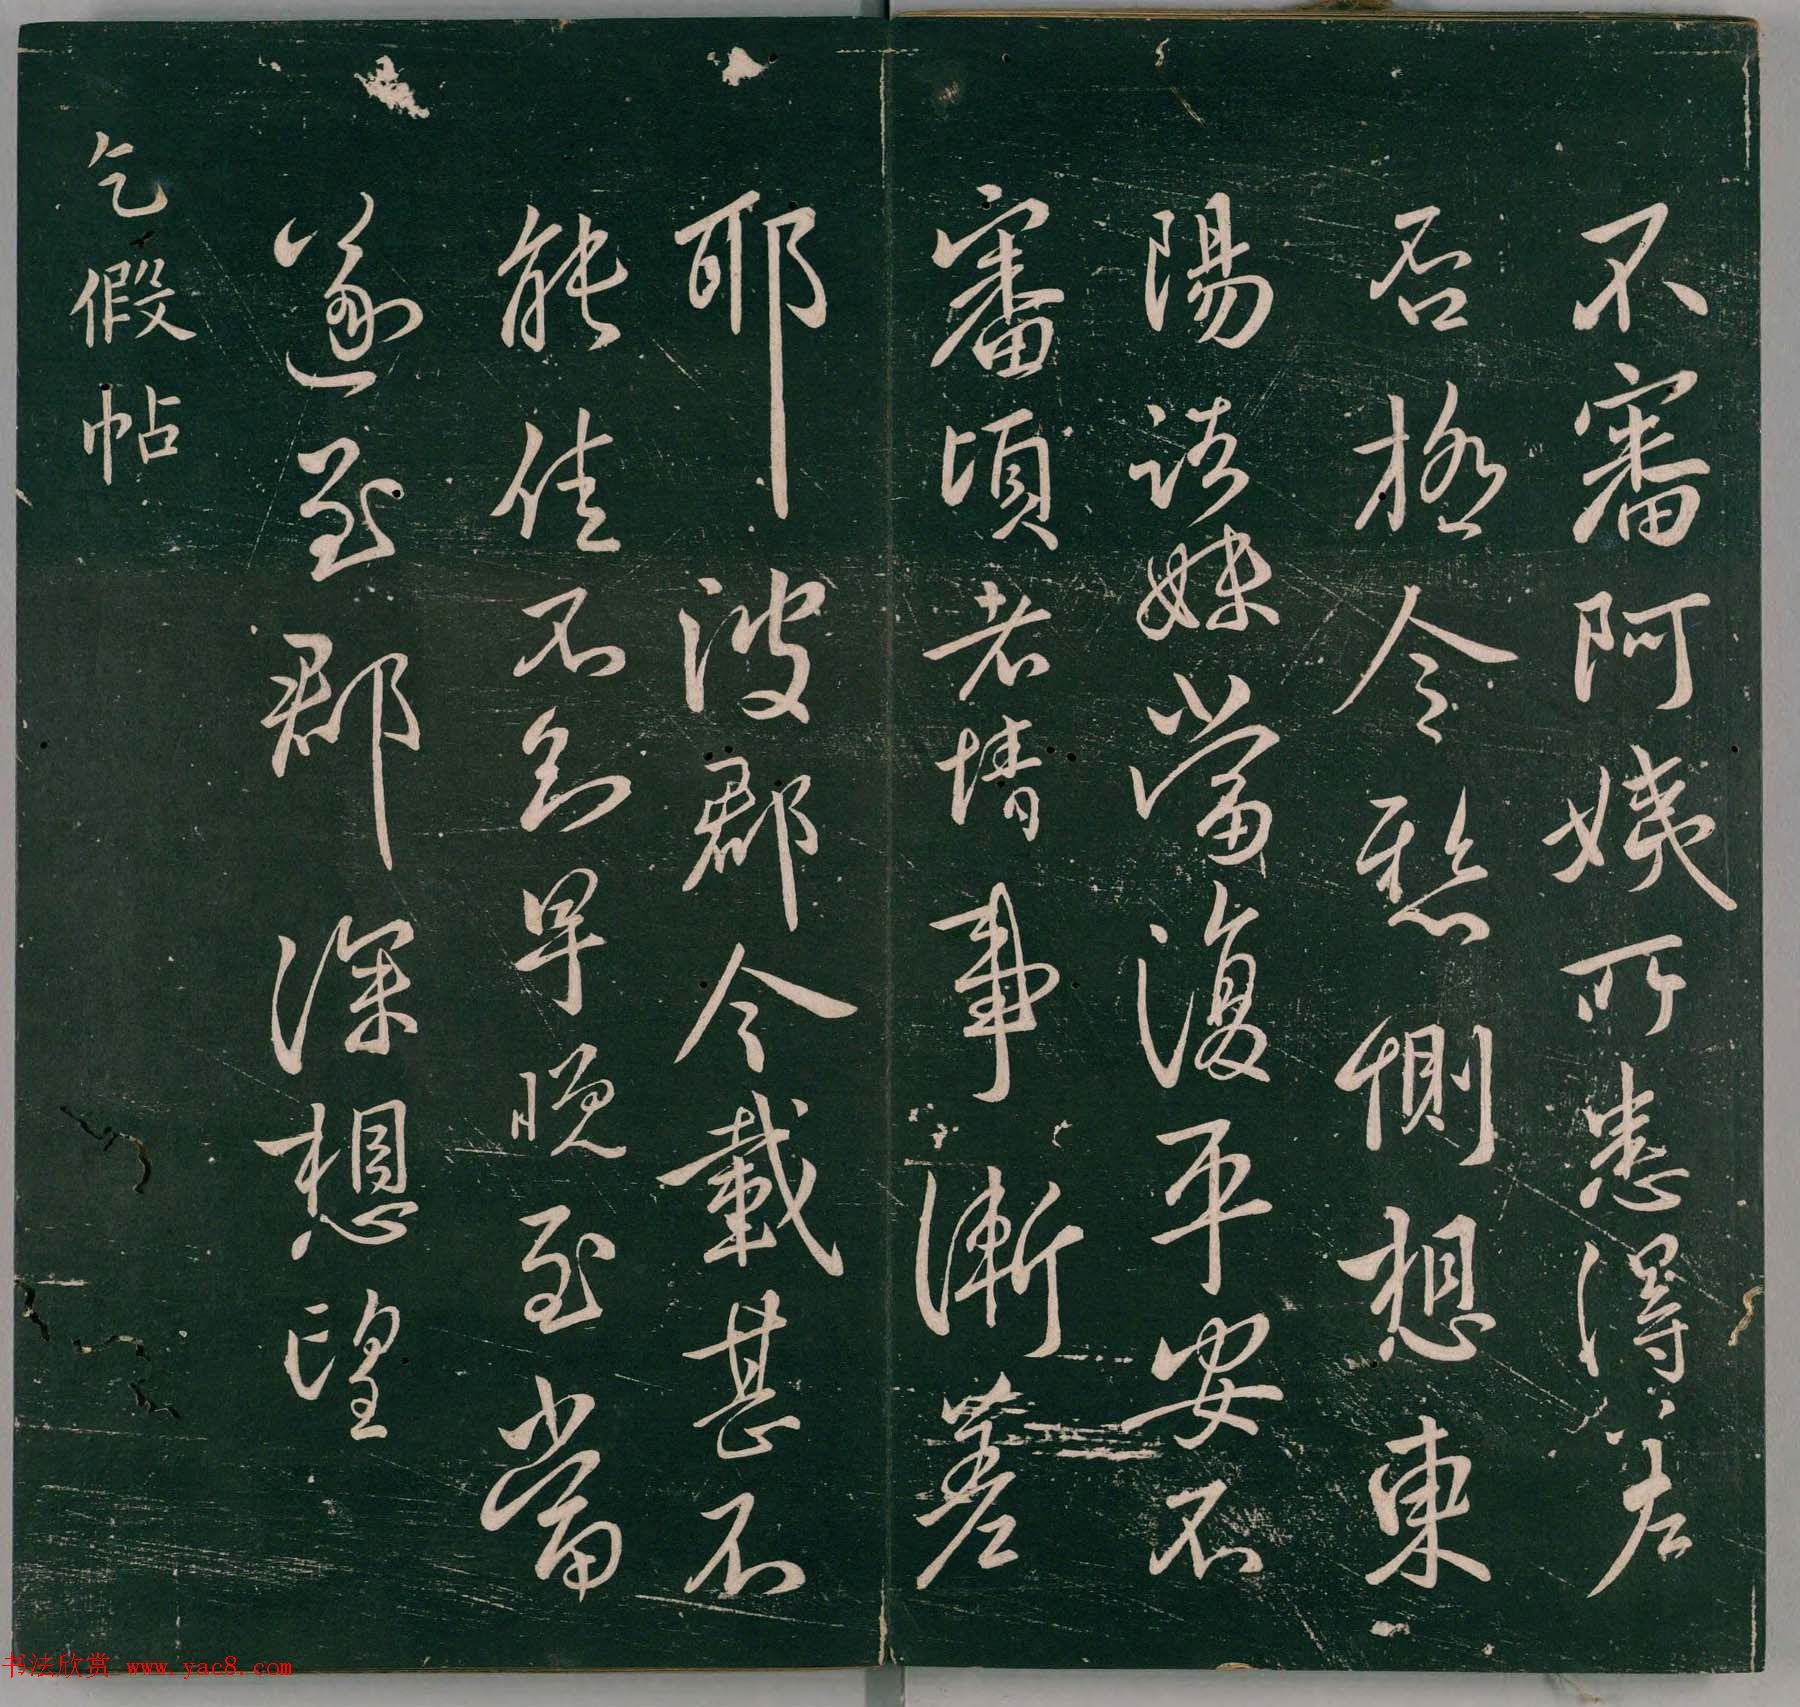 不審阿姨所患得差
否極令悬惻想東
陽諸妹當復平安不
審頃者情事漸差
耶彼郡今載甚不
能佳不知早晚至當
遂至郡深想望
乞假帖
书法欣赏 www.yac8.com